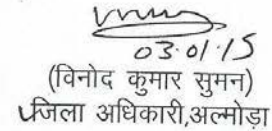 03.01.15
(विनोद कुमार सुमन)
जिला अधिकारी,अल्मोड़ा